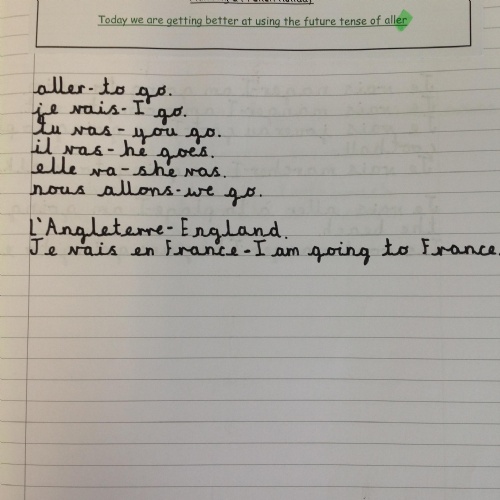 Today we are getting better at using the future tense of aller
aller - to go.
je vais - I go.
tu vas - you go.
il vas - he goes.
elle va - she vas.
nous allons - we go.
L'Angleterre - England.
Je vais en France - I am going to France.